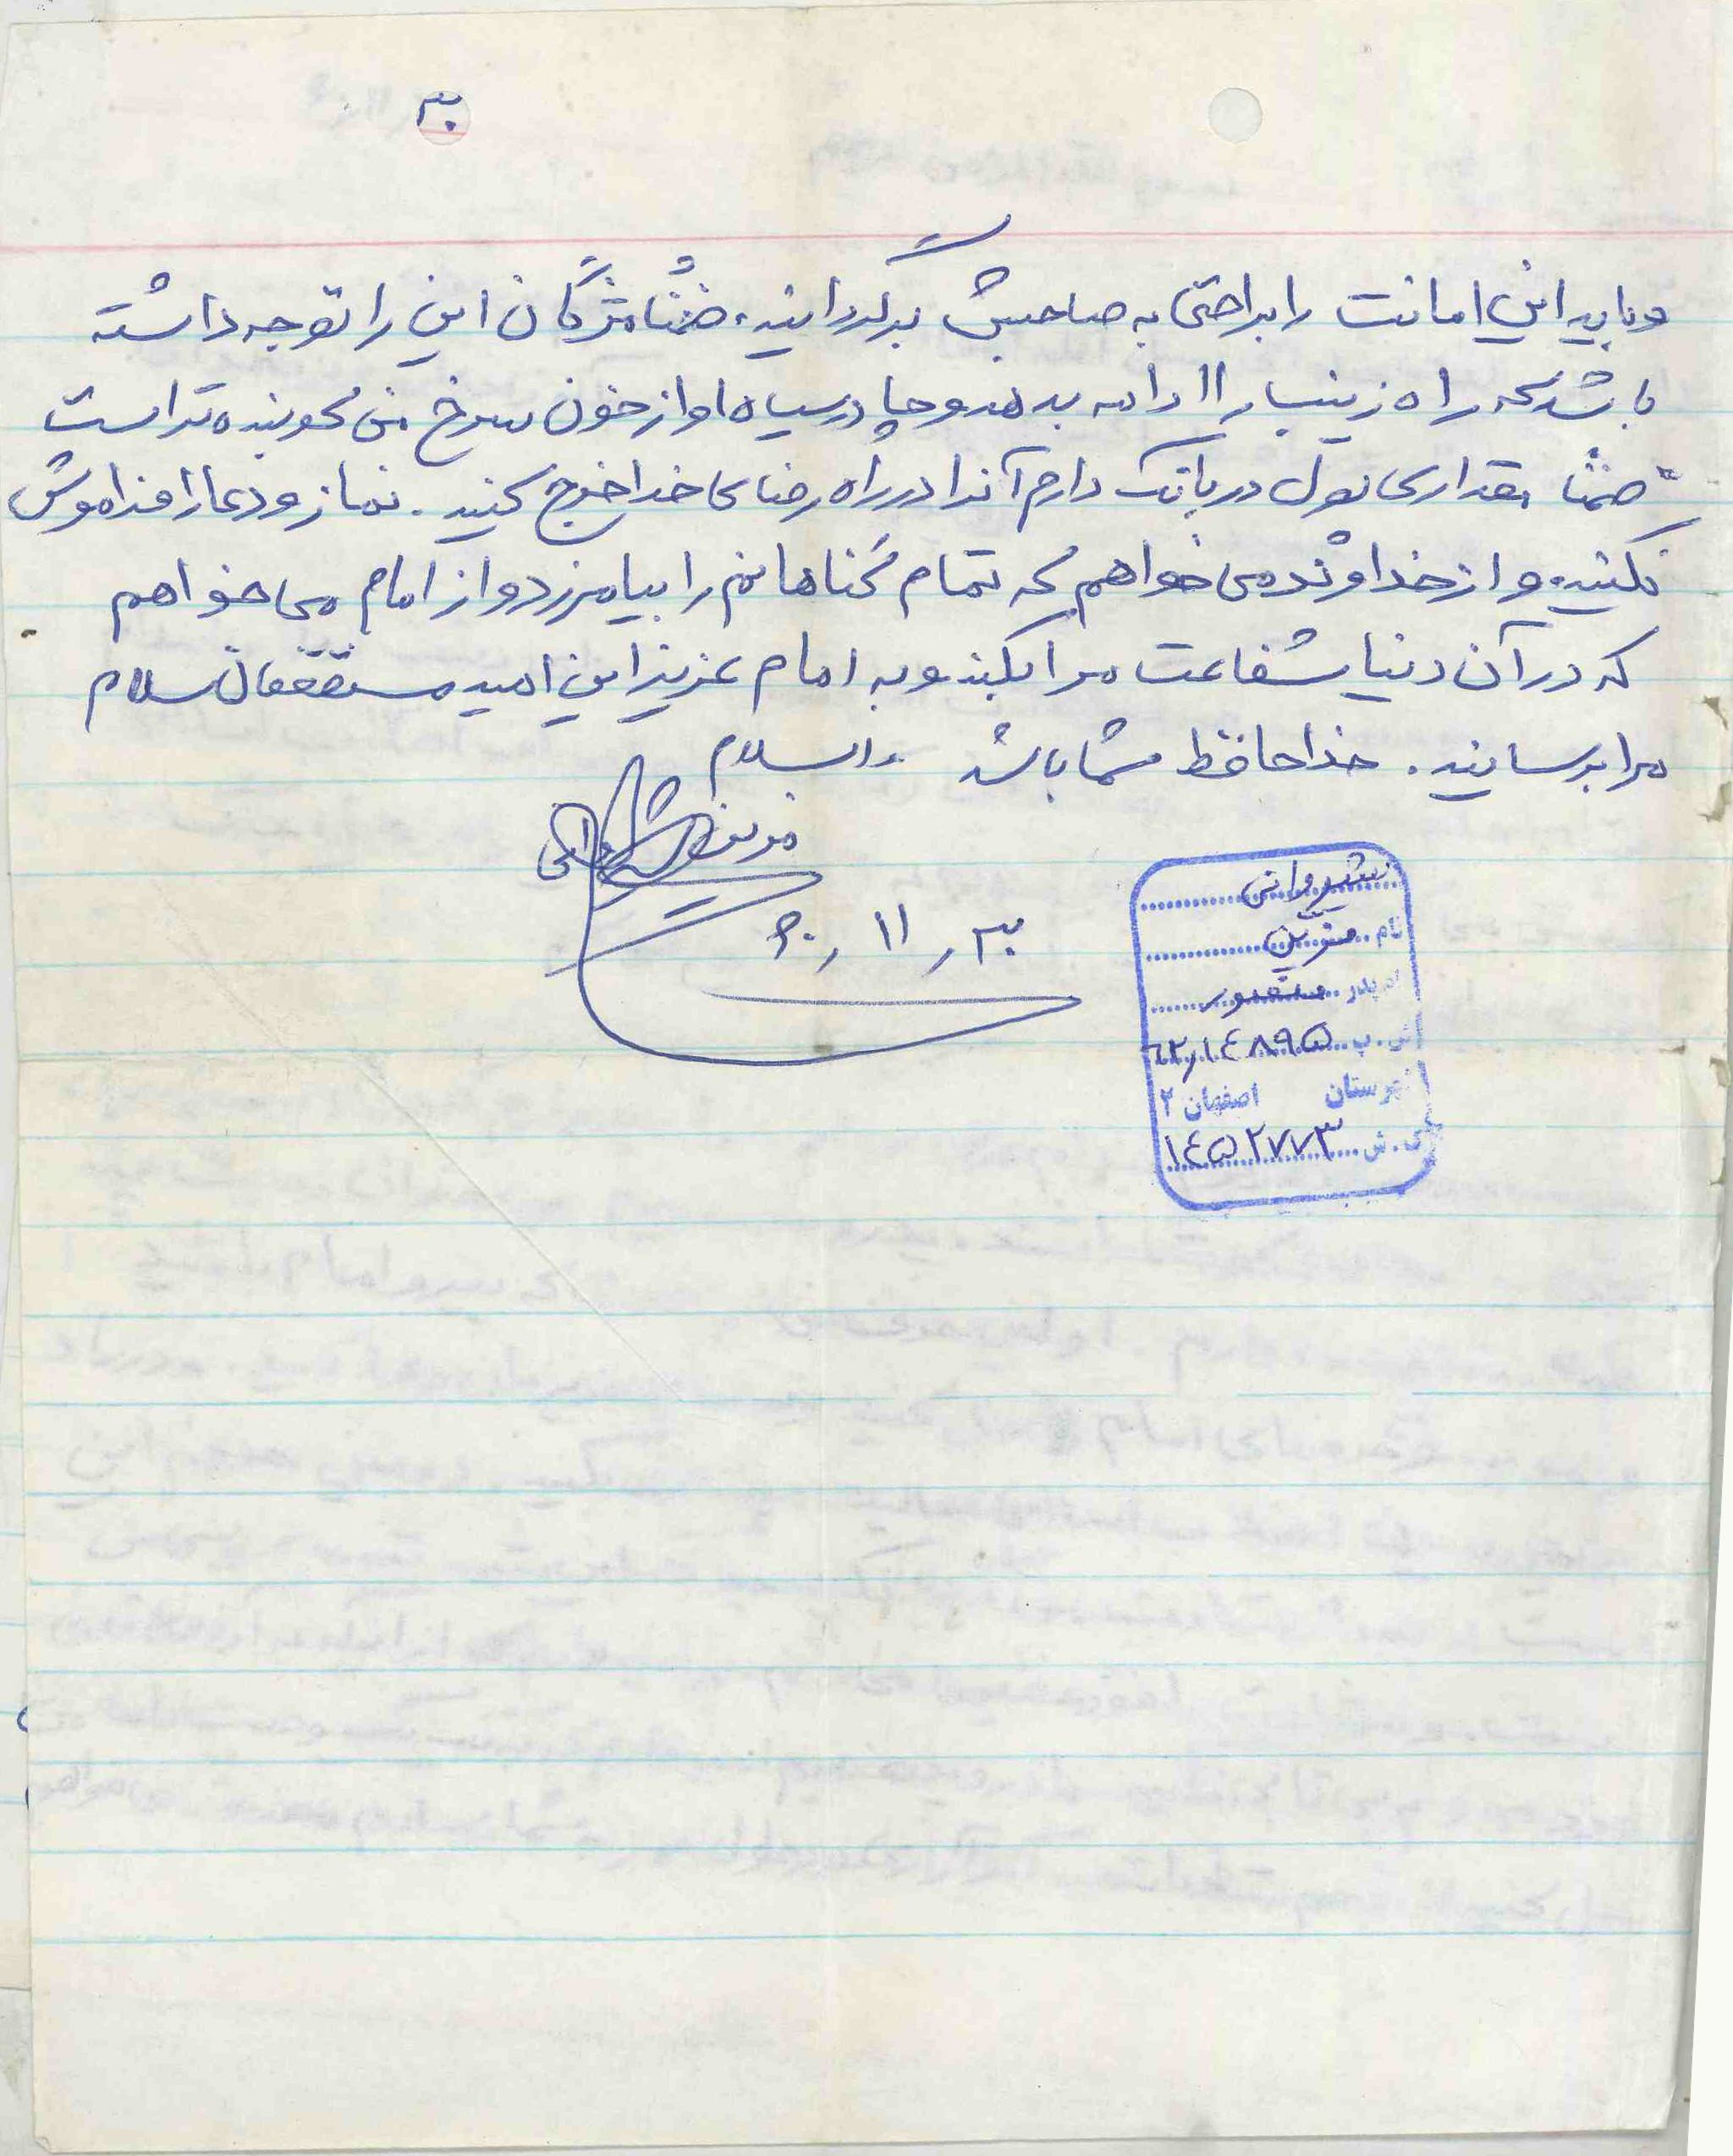 ۳
و باید این امانت را براحتی به صاحبش برگردانید، ضمناً مژگان این را توجه داشته
باشد که راه زینب را ادامه بدهد و چادر سیاه او از خون سرخ من کوبنده تر است
ضمناً مقداری پول در بانک دارم آنرا در راه رضای خدا خرج کنید. نماز و دعا را فراموش
نکنید و از خداوند می خواهم که تمام گناهانم را بیامرزد و از امام می خواهم
که در آن دنیا شفاعت مرا بکند و به امام عزیز این امید مستضعفان سلام
مرا برسانید. خدا حافظ شما باشد والسلام
۶۰٫ ۱۱ ٫ ۳۰
شیروانی
نام
نام پدر
ش. پ ۶۲٫۱۴۸۹۵
شهرستان اصفهان ۲
ک. ش ۱۴۵۲۷۷۳